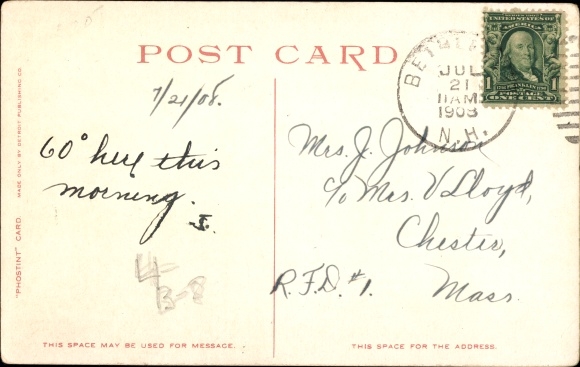 POST CARD
7/21/08.
60° here this
morning.
J.
4
B-8
"PHOSTINT" CARD. MADE ONLY BY DETROIT PUBLISHING CO.
THIS SPACE MAY BE USED FOR MESSAGE.
BETHLEHEM
JUL
21
11AM
1908
N.H.
UNITED STATES OF
AMERICA
1 FRANKLIN 1
POSTAGE
ONE CENT
Mrs. J. Johnson
c/o Mrs. V Lloyd,
Chester,
R.F.D. #1. Mass.
THIS SPACE FOR THE ADDRESS.